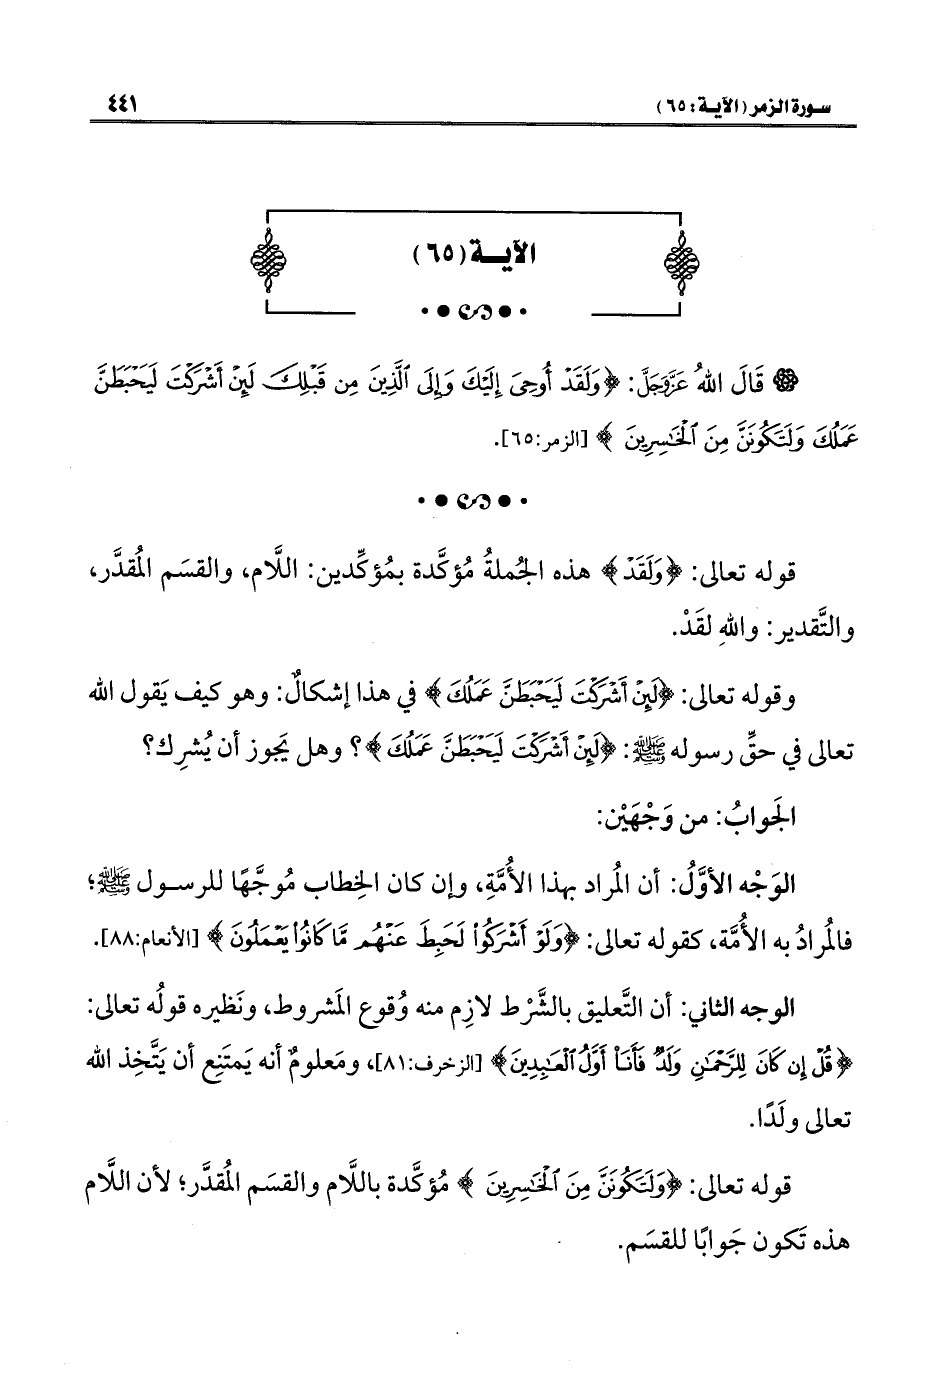 سورة الزمر (الآية: ٦٥)
٤٤١
الآيـة (٦٥)
قَالَ اللهُ عَزَّوَجَلَّ: ﴿وَلَقَدْ أُوحِىَ إِلَيْكَ وَإِلَى ٱلَّذِينَ مِن قَبْلِكَ لَئِنْ أَشْرَكْتَ لَيَحْبَطَنَّ
عَمَلُكَ وَلَتَكُونَنَّ مِنَ ٱلْخَٰسِرِينَ﴾ [الزمر:٦٥].
قوله تعالى: ﴿وَلَقَدْ﴾ هذه الجُملةُ مُؤكَّدة بمُؤكِّدين: اللَّام، والقسَم المُقدَّر،
والتَّقدير: واللهِ لقَدْ.
وقوله تعالى: ﴿لَئِنْ أَشْرَكْتَ لَيَحْبَطَنَّ عَمَلُكَ﴾ في هذا إشكالٌ: وهو كيف يَقول الله
تعالى في حقِّ رسوله ﷺ: ﴿لَئِنْ أَشْرَكْتَ لَيَحْبَطَنَّ عَمَلُكَ﴾؟ وهل يَجوز أن يُشرِك؟
الجَوابُ: من وَجْهَيْن:
الوَجْه الأوَّلُ: أن المُراد بهذا الأُمَّةِ، وإن كان الخِطاب مُوجَّهًا للرسول ﷺ؛
فالمُرادُ به الأُمَّة، كقوله تعالى: ﴿وَلَوْ أَشْرَكُوا۟ لَحَبِطَ عَنْهُم مَّا كَانُوا۟ يَعْمَلُونَ﴾ [الأنعام:٨٨].
الوجه الثاني: أن التَّعليق بالشَّرْط لازِم منه وُقوع المَشروط، ونَظيره قولُه تعالى:
﴿قُلْ إِن كَانَ لِلرَّحْمَٰنِ وَلَدٌ فَأَنَا۠ أَوَّلُ ٱلْعَٰبِدِينَ﴾ [الزخرف:٨١]، ومَعلومٌ أنه يَمتَنِع أن يَتَّخِذ الله
تعالى ولَدًا.
قوله تعالى: ﴿وَلَتَكُونَنَّ مِنَ ٱلْخَٰسِرِينَ﴾ مُؤكَّدة باللَّام والقسَم المُقدَّر؛ لأن اللَّام
هذه تَكون جَوابًا للقسَم.